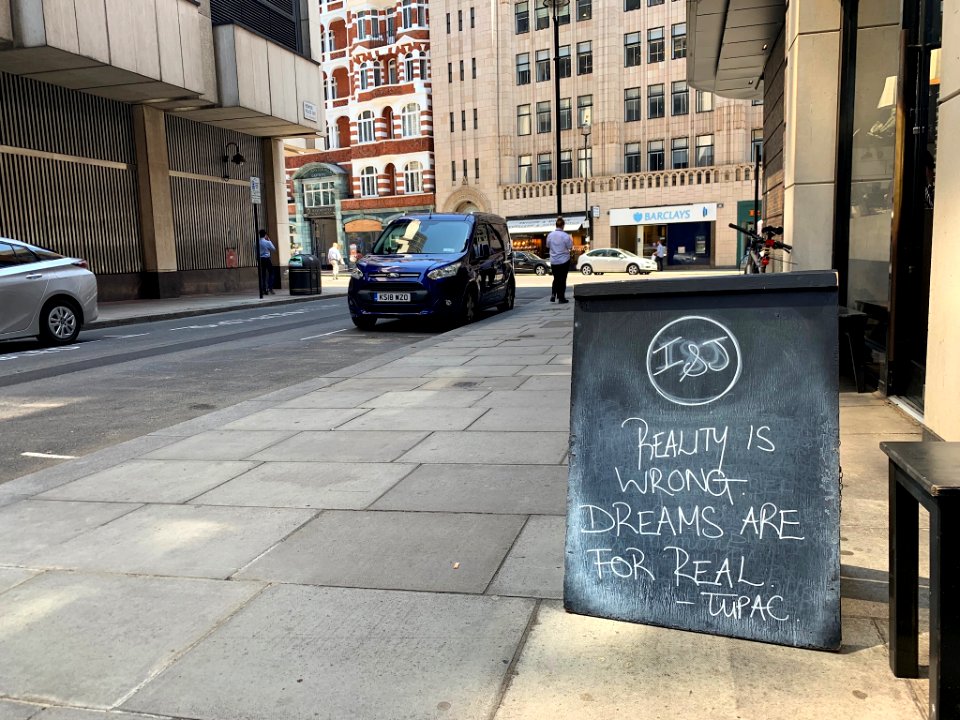 BARCLAYS
KS18 WZO
I&J
REALITY IS
WRONG.
DREAMS ARE
FOR REAL.
- TUPAC.